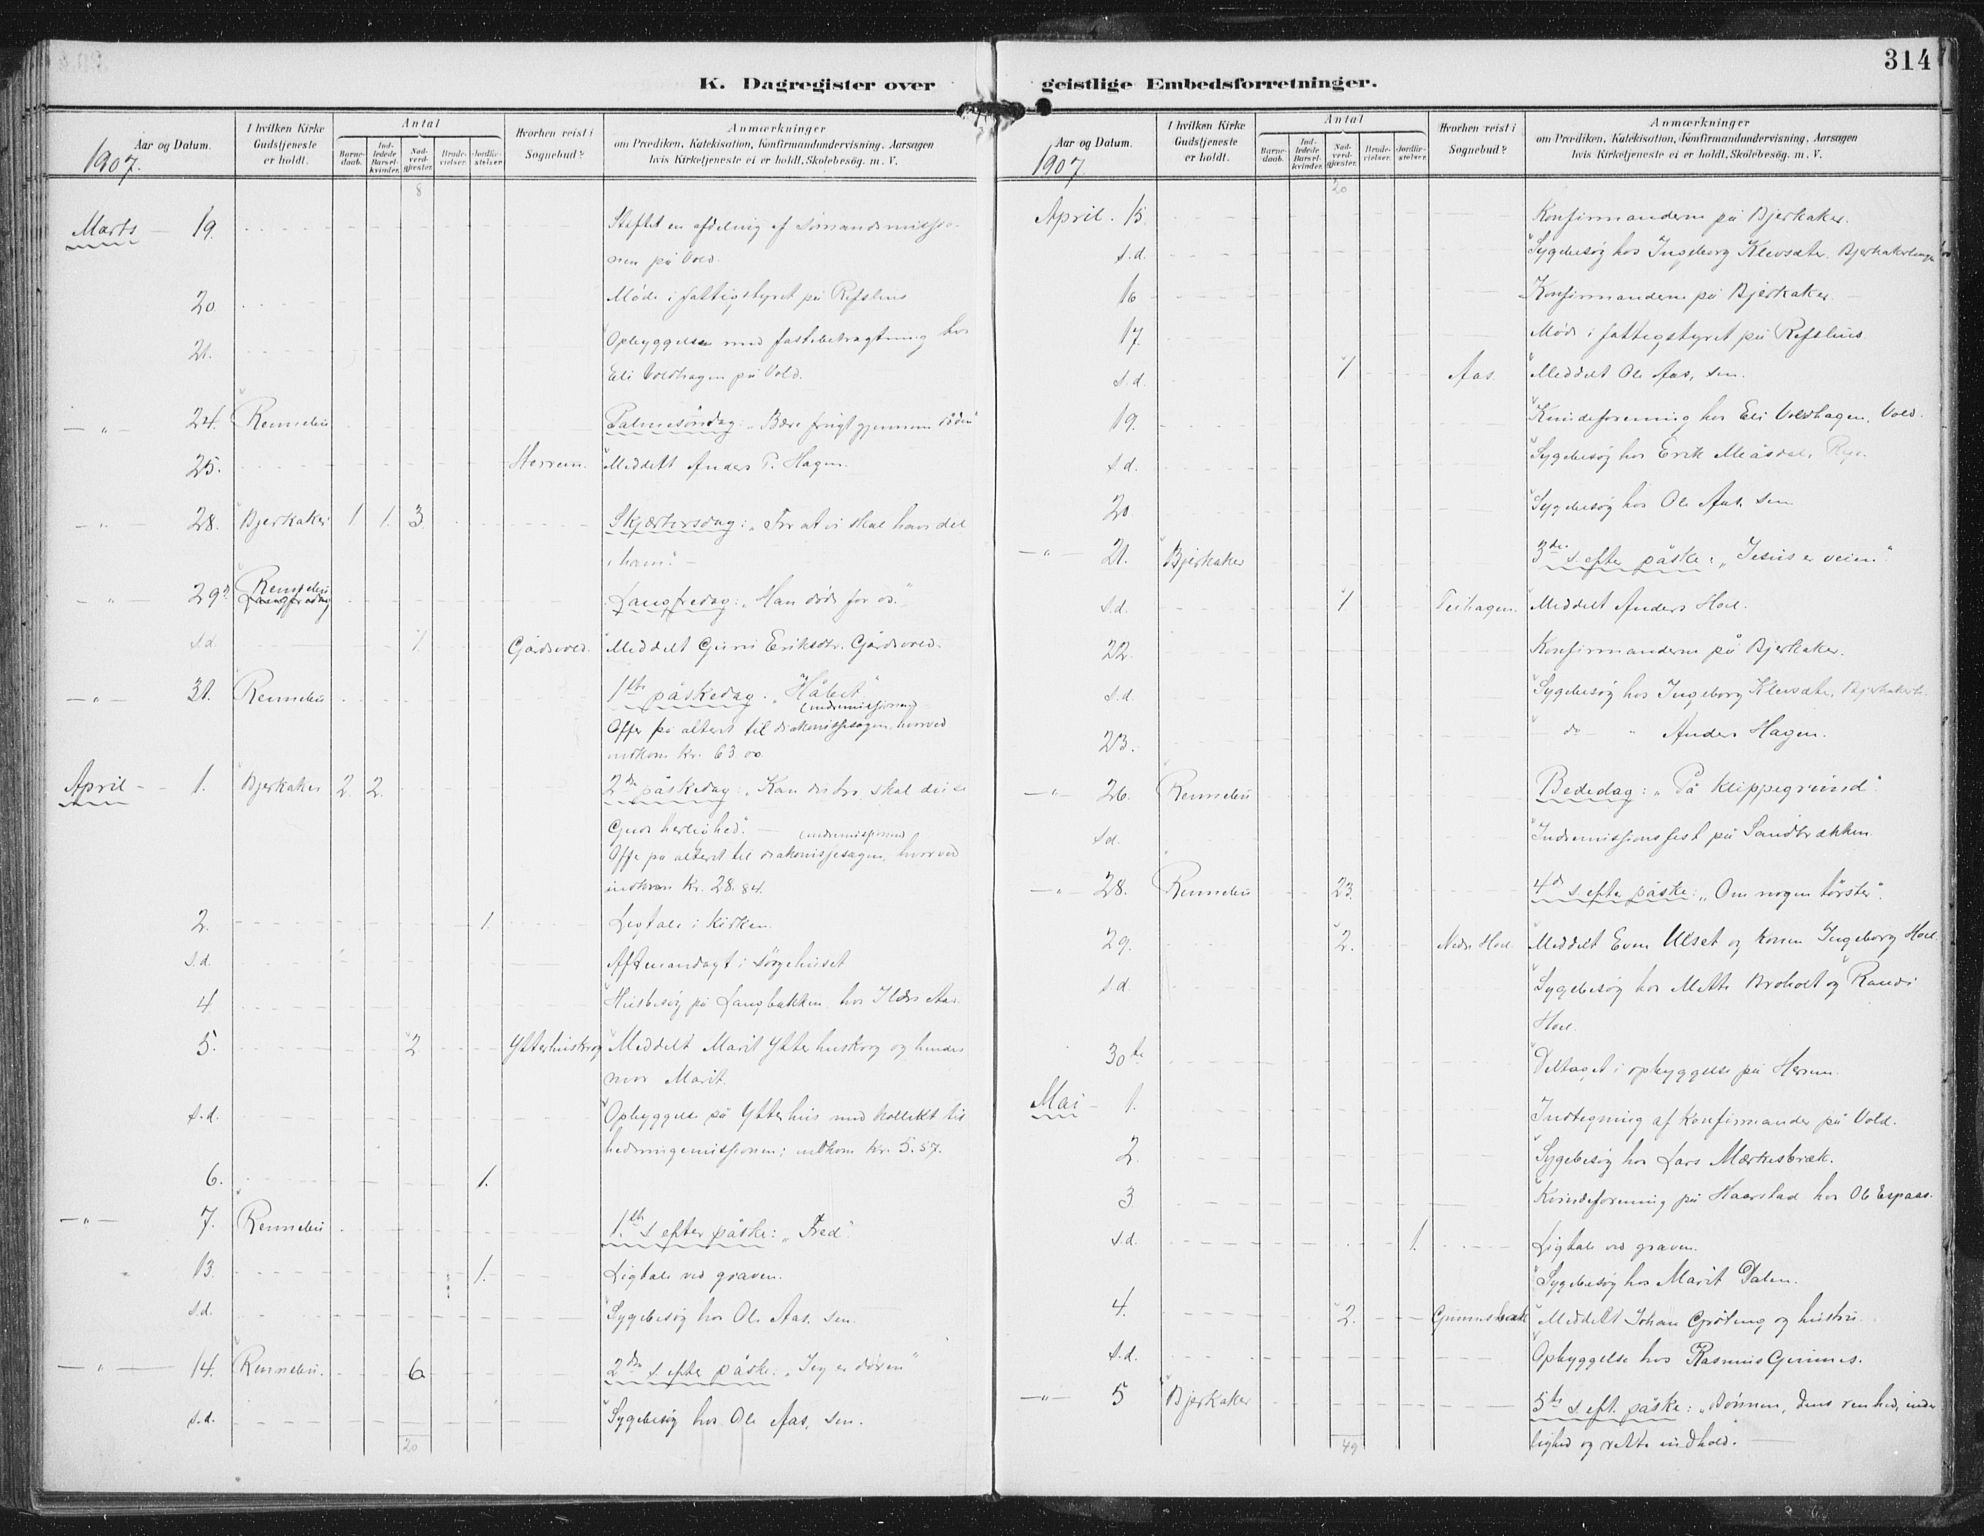 314
K. Dagregister over geistlige Embedsforretninger.
Aar og Datum.
I hvilken Kirke Gudstjeneste er holdt.
Antal
Barnedaab.
Indledede Barselkvinder.
Nadverdgjester.
Brudevielser.
Jordfæstelser.
Hvorhen reist i Sognebud?
Anmærkninger
om Prædiken, Katekisation, Konfirmandundervisning, Aarsagen
hvis Kirketjeneste ei er holdt, Skolebesøg. m. V.
1907.
8
Marts 19. Stiftet en afdeling af Sømandsmissio-
nen på Vold.
20 Møde i fattigstyret på Refshus
21. Opbyggelse med fastebetragtning hos
Eli Voldhagen på Vold.
— " — 24. Rennebu Palmesøndag: „Bære frugt gjennem døden"
25. Herrem. Meddelt Anders P. Hagen.
— " — 28. Bjerkaker 1 1. 3 Skjærtorsdag: „For at vi skal have del
i ham." —
— " — 29de Rennebu Langfredag Langfredag: „Han døde for os."
s.d. 1 Gårdsvold. Meddelt Guri Eriksdtr. Gårdsvold.
— " — 31. Rennebu 1ste påskedag. „Håbet".
(indremissionen)
Offer på alteret til diakonissesagen, hvorved
indkom kr. 63.00
April — 1. Bjerkaker 2. 2. 2den påskedag: „Kan du tro, skal du se
Guds herlighed". —
(indremissionen)
Offer på alteret til diakonissesagen, hvorved
indkom kr. 28.84.
2. 1. Ligtale i kirken.
s.d. Aftenandagt i sørgehuset
4. Husbesøg på Langbakken hos Aas.
5. 2. Ytterhuskrog Meddelt Marit Ytterhuskrog og hendes
mor Marit.
s.d. Opbyggelse på Ytterhus med kollekt til
hedningemissionen; indkom kr. 5.57.
6. 1.
— " — 7. Rennebu 1.ste s. efter påske: „Fred".
13. 1. Ligtale ved graven.
s.d. Sygebesøg hos Ole Aas, sen.
— " — 14. Rennebu. 6 2den s. efter påske: „Jeg er døren"
s.d. Sygebesøg hos Ole Aas, sen.
20
Aar og Datum.
I hvilken Kirke Gudstjeneste er holdt.
Antal
Barnedaab.
Indledede Barselkvinder.
Nadverdgjester.
Brudevielser.
Jordfæstelser.
Hvorhen reist i Sognebud?
Anmærkninger
om Prædiken, Katekisation, Konfirmandundervisning, Aarsagen
hvis Kirketjeneste ei er holdt, Skolebesøg. m. V.
1907
20
April. 15. Konfirmanderne på Bjerkaker.
s.d. Sygebesøg hos Ingeborg Klevsæter.
16 Konfirmanderne på Bjerkaker. —
17. Møde i fattigstyret på Refshus.
s.d. 1 Aas. Meddelt Ole Aas, sen.
19. Kvindeforening hos Eli Voldhagen, Vold.
s.d. Sygebesøg hos Erik Meåsdal,
20 Sygebesøg hos Ole Aas, sen
— " — 21. Bjerkaker 3die s. efter påske: „Jesus er veien."
s.d. 1 Teihagen. Meddelt Anders Hoel.
22. Konfirmanderne på Bjerkaker.
s.d. Sygebesøg hos Ingeborg Klevsæter,
23. do " Anders Hagen.
— " — 26. Rennebu Bededag: „På klippegrund".
s.d. Indremissionsfest på Sandbrækken.
— " — 28. Rennebu 23. 4de s. efter påske: „Om nogen tørster".
29. 2. Nedre Hoel. Meddelt Even Ulset og konen Ingeborg Hoel
s.d. Sygebesøg hos Mette Broholt og Randi
Hoel.
30te Deltaget i opbyggelse på Herrem.
Mai — 1. Indtegning af konfirmander på Vold.
2. Sygebesøg hos Lars Mærkesbræk.
3 Kvindeforening på Haarstad hos Ole Espaas.
s.d. 1. Ligtale ved graven.
Sygebesøg hos Marit Dalen.
4. 2. Gunnesbæk Meddelt Johan Grøting og hustru.
s.d. Opbyggelse hos Rasmus Gunnes.
— " — 5 Bjerkaker 5te s. eft. påske: „Bønnen, dens renhed, inder
lighed og rette indhold. —
49